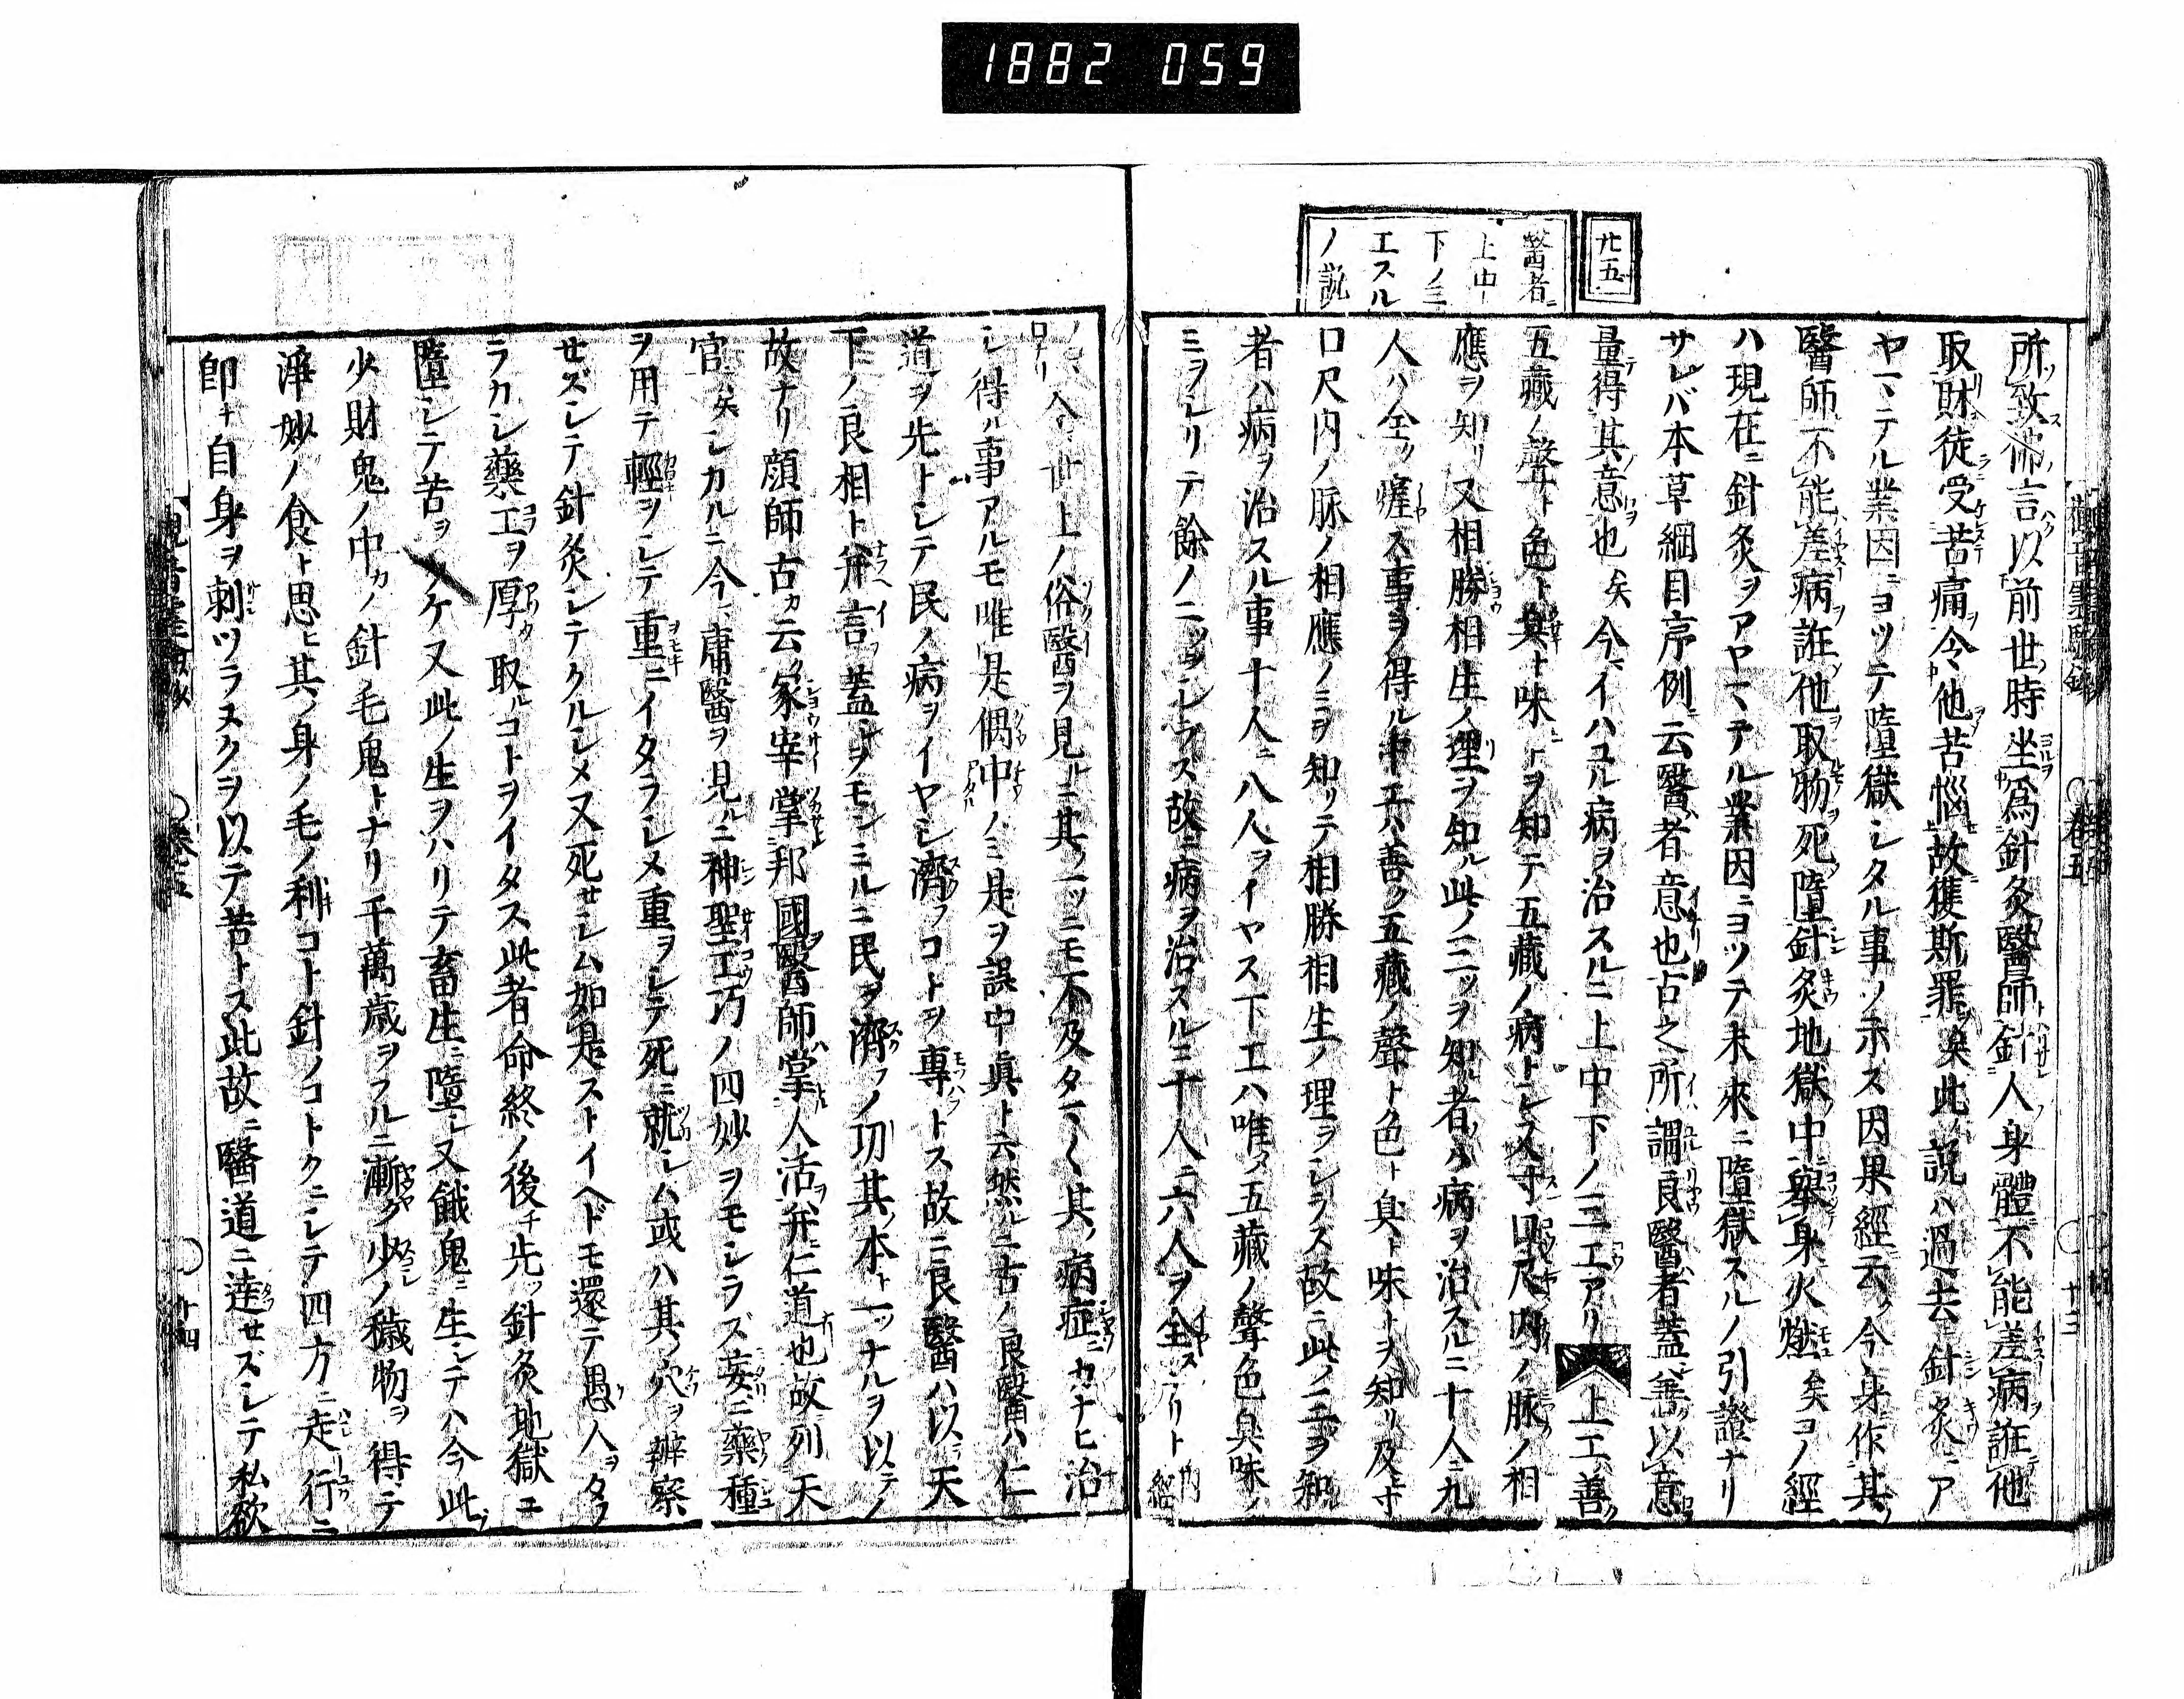 1882 059
廿五
醫者ニ
上中
下ノ三
工スル
ノ説
所致佛言以前世時坐爲針灸醫師針人身體不能差病誑他
取財徒受苦痛令他苦惱故獲斯罪矣此ノ説ハ過去ニ針灸ニア
ヤマテル業因ニヨツテ墮獄シタル事ノ示ス因果經云今身作其
醫師不能差病誑他取物死墮針灸地獄中擧身火燃矣コノ經
ハ現在ニ針灸ヲアヤマテル業因ニヨツテ未來ニ墮獄スルノ引證ナリ
サレバ本草綱目序例ニ云醫者意也古之所謂良醫者蓋善以意
量得其意也矣今イハユル病ヲ治スルニ上中下ノ三工アリ上工善ク
五藏ノ聲ト色ト臭ト味トヲ知テ五藏ノ病トシ又寸口尺内ノ脉ノ相
應ヲ知リ又相勝相生ノ理ヲ知ル此ノ三ツヲ知ル者ハ病ヲ治スルニ十人ニ九
人ハ全ク癯ス事ヲ得ル中工ハ善ク五藏ノ聲ト色ト臭ト味トヲ知リ及ニ寸
口尺内ノ脉ノ相應ノミヲ知リテ相勝相生ノ理ヲシラズ故ニ此ノ二ヲ知
者ハ病ヲ治スル事十人ニ八人ヲイヤス下工ハ唯タ五藏ノ聲色臭味ノ
ミヲシリテ餘ノ二ツヲシラス故ニ病ヲ治スルニ十人ニ六人ヲ全スリト 内經
ノ 今世上ノ俗醫ヲ見ルニ其ノ一ツニモ不及タマ〱其ノ病症ニカナヒ治
シ得ル事アルモ唯是偶中ノミ是ヲ誤中眞ト云然ルニ古ノ良醫ハ仁
道ヲ先トシテ民ノ病ヲイヤシ濟フコトヲ專トス故ニ良醫ハ以天
下ノ良相ト并言蓋シヲモンミルニ民ヲ濟フノ功其ノ本ト一ツナルヲ以テノ
故ナリ顔師古カ云家宰掌邦國醫師掌人活并仁道也故列天
官矣シカルニ今庸醫ヲ見ルニ神聖工巧ノ四妙ヲモシラズ妄ニ藥種
ヲ用テ輕ヲシテ重ニイタラシメ重ヲシテ死ニ就シム或ハ其ノ穴ヲ辨察
セズシテ針灸シテクルシメ又死セシム如是ストイヘドモ還テ愚人ヲタフ
ラカシ藥工ヲ厚ク取ルコトヲイタス此者命終ノ後チ先ツ針灸地獄ニ
墮シテ苦ヲウケ又此ノ生ヲハリテ畜生ニ墮シ又餓鬼ニ生シテハ今此ノ
少財鬼ノ中カノ針毛鬼トナリ千萬歳ヲフルニ漸ク少シノ穢物ヲ得テ
淨妙ノ食ト思ヒ其ノ身ノ毛ノ利コト針ノコトクニシテ四方ニ走行ニ
即チ自身ヲ刺ツラヌクヲ以テ苦トス此故ニ醫道ニ達セズシテ私欲